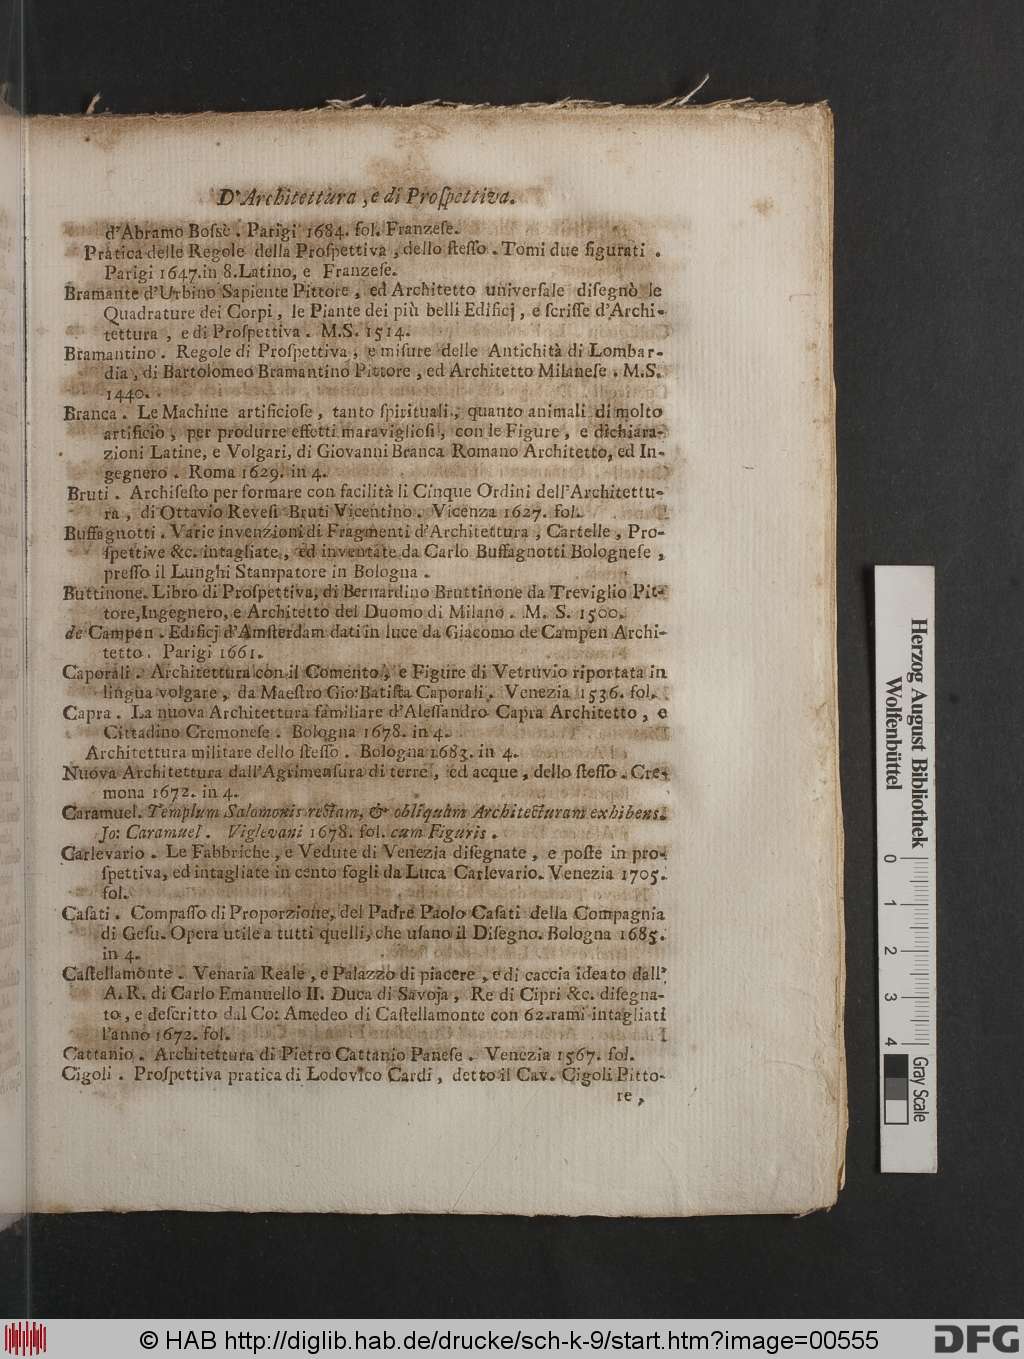 D'Architettura, e di Proſpettiva.
d'Abramo Boſsè. Parigi 1684. fol. Franzeſe.
Pratica delle Regole della Proſpettiva, dello ſteſſo. Tomi due figurati.
Parigi 1647. in 8. Latino, e Franzeſe.
Bramante d'Urbino Sapiente Pittore, ed Architetto univerſale diſegnò le
Quadrature dei Corpi, le Piante dei più belli Edificj, e ſcriſſe d'Archi-
tettura, e di Proſpettiva. M.S. 1514.
Bramantino. Regole di Proſpettiva, e miſure delle Antichità di Lombar-
dia, di Bartolomeo Bramantino Pittore, ed Architetto Milaneſe. M.S.
1440.
Branca. Le Machine artificioſe, tanto ſpirituali, quanto animali di molto
artificio, per produrre effetti maraviglioſi, con le Figure, e dichiara-
zioni Latine, e Volgari, di Giovanni Branca Romano Architetto, ed In-
gegnero. Roma 1629. in 4.
Bruti. Archiſeſto per formare con facilità li Cinque Ordini dell'Architettu-
ra, di Ottavio Reveſi Bruti Vicentino. Vicenza 1627. fol.
Buffagnotti. Varie invenzioni di Fragmenti d'Architettura, Cartelle, Pro-
ſpettive &c. intagliate, ed inventate da Carlo Buffagnotti Bologneſe,
preſſo il Lunghi Stampatore in Bologna.
Buttinone. Libro di Proſpettiva, di Bernardino Bruttinone da Treviglio Pit-
tore, Ingegnero, e Architetto del Duomo di Milano. M. S. 1500.
de Campen. Edificj d'Amſterdam dati in luce da Giacomo de Campen Archi-
tetto. Parigi 1661.
Caporali. Architettura con il Comento, e Figure di Vetruvio riportata in
lingua volgare, da Maeſtro Gio: Batiſta Caporali. Venezia 1536. fol.
Capra. La nuova Architettura familiare d'Aleſſandro Capra Architetto, e
Cittadino Cremoneſe. Bologna 1678. in 4.
Architettura militare dello ſteſſo. Bologna 1683. in 4.
Nuova Architettura dall'Agrimenſura di terre, ed acque, dello ſteſſo. Cre-
mona 1672. in 4.
Caramuel. Templum Salomonis rectam, & obliquam Architecturam exhibens.
Jo: Caramuel. Viglevani 1678. fol. cum Figuris.
Carlevario. Le Fabbriche, e Vedute di Venezia diſegnate, e poſte in pro-
ſpettiva, ed intagliate in cento fogli da Luca Carlevario. Venezia 1705.
fol.
Caſati. Compaſſo di Proporzione, del Padre Paolo Caſati della Compagnia
di Geſu. Opera utile a tutti quelli, che uſano il Diſegno. Bologna 1685.
in 4.
Caſtellamonte. Venaria Reale, e Palazzo di piacere, e di caccia ideato dall'
A. R. di Carlo Emanuello II. Duca di Savoja, Re di Cipri &c. diſegna-
to, e deſcritto dal Co: Amedeo di Caſtellamonte con 62. rami intagliati
l'anno 1672. fol.
Cattanio. Architettura di Pietro Cattanio Paneſe. Venezia 1567. fol.
Cigoli. Proſpettiva pratica di Lodovico Cardi, detto il Cav. Cigoli Pitto-
re,
Herzog August Bibliothek
Wolfenbüttel
0 1 2 3 4
Gray Scale
© HAB http://diglib.hab.de/drucke/sch-k-9/start.htm?image=00555
DFG